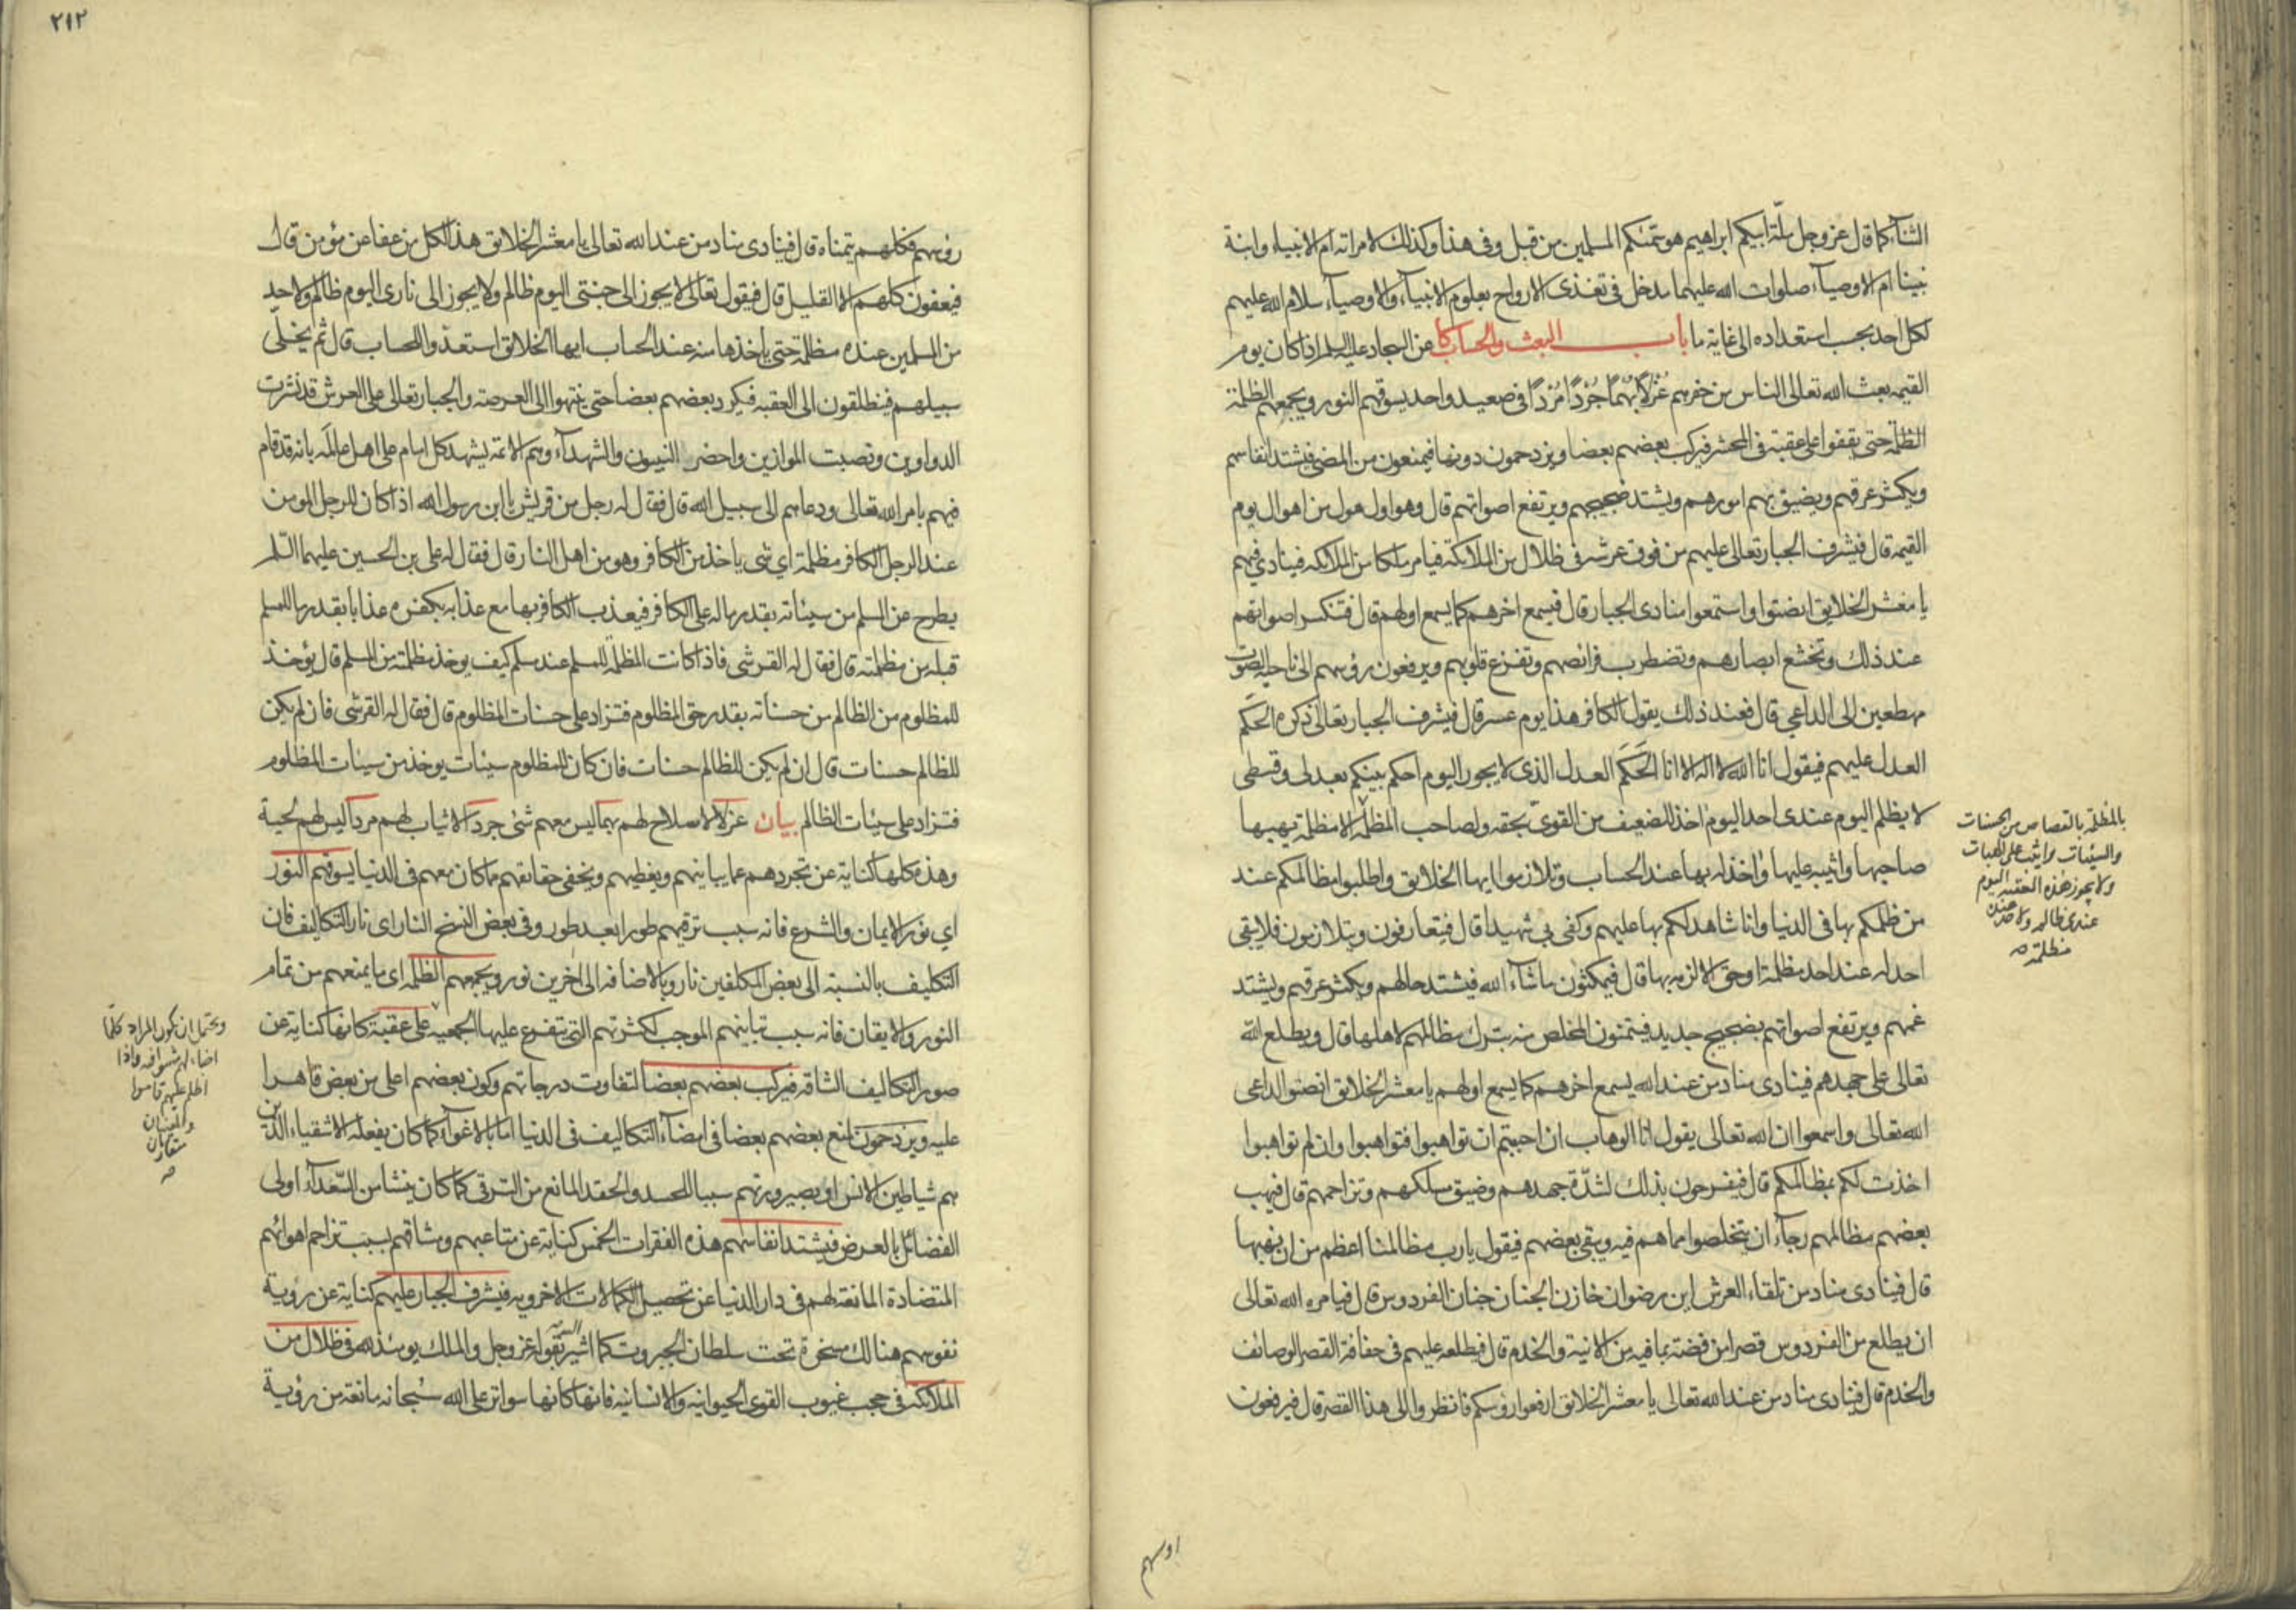 الشأكما قال عز وجل ملّة ابيكم ابراهيم هو سمّيكم المسلمين من قبل وفى هذا وكذلك لامراته ام الانبياء وابنة
نبينا ام الاوصيآء صلوات الله عليهما مدخل فى تغذى الارواح بعلوم الانبيآء والاوصيآء سلام الله عليهم
لكل احد بحسب استعداده الى غاية ما باب البعث والحساب كا عن السجاد عليه السلم اذا كان يوم
القيمه بعث الله تعالى الناس من حفرهم عُزْلًا بُهْمًا جُرْدًا مُرْدًا فى صعيد واحد يسوقهم النور ويجمعهم الظلمة
الظلمة حتى يقفوا على عقبة فى المحشر فيركب بعضهم بعضا ويزدحمون دونها فيمنعون من المضى فيشتد انفاسهم
ويكثر عرقهم ويضيق بهم امورهم ويشتد ضجيجهم ويرتفع اصواتهم قال وهو اول هول من اهوال يوم
القيمه قال فيشرف الجبار تعالى عليهم من فوق عرشه فى ظلال من الملائكة فيامر ملكا من الملائكه فينادي فيهم
يا معشر الخلايق انصتوا واستمعوا منادى الجبار قال فيسمع اخرهم كما يسمع اولهم قال فتنكسر اصواتهم
عند ذلك وتخشع ابصارهم وتضطرب فرائصهم وتفزع قلوبهم ويرفعون رؤسهم الى ناحية الصّوت
مهطعين الى الداعي قال فعند ذلك يقول الكافر هذا يوم عسر قال فيشرف الجبار تعالى ذكره الحَكَم
العدل عليهم فيقول انا الله لا اله الا انا الحَكَم العدل الذى لا يجور اليوم احكم بينكم بعدلى وقسطى
لا يظلم اليوم عندى احد اليوم اخذ للضعيف من القوىّ بحقه ولصاحب المظلمة الا مظلمة يهبها
صاحبها واثيبه عليها واخذ له بها عند الحساب وتلازموا ايها الخلائق واطلبوا مظالمكم عند
من ظلمكم بها فى الدنيا وانا شاهد لكم بها عليهم وكفى بى شهيدا قال فيتعارفون ويتلازمون فلا يبقى
احد له عند احد مظلمة او حق الا لزمه بها قال فيمكثون ماشآء الله فيشتد حالهم ويكثر عرقهم ويشتد
غمهم ويرتفع اصواتهم بضجيج جديد فيتمنون المخلص منه بترك مظالمهم لاهلها قال ويطلع الله
تعالى على جهدهم فينادى مناد من عند الله يسمع اخرهم كما يسمع اولهم يا معشر الخلائق انصتوا لداعى
الله تعالى واسمعوا ان الله تعالى يقول انا الوهاب ان احببتم ان تواهبوا فتواهبوا وان لم تواهبوا
اخذت لكم بمظالمكم قال فيفرحون بذلك لشدّة جهدهم وضيق مسلكهم وتزاحمهم قال فيهب
بعضهم مظالمهم رجآء ان يتخلصوا مما هم فيه ويبقى بعضهم فيقول يارب مظالمنا اعظم من ان نهبها
قال فينادى مناد من تلقاء العرش اين رضوان خازن الجنان جنان الفردوس قال فيامره الله تعالى
ان يطلع من الفردوس قصرا من فضة بما فيه من الانية والخدم قال فيطلعه عليهم فى حفافة القصر الوصائف
والخدم قال فينادى مناد من عند الله تعالى يا معشر الخلائق ارفعوا رؤسكم فانظروا الى هذا القصر قال فيرفعون
بالمظلمة بالقصاص من الحسنات
والسيئات واثيب على الهبات
ولا يجوز هذه العقبه اليوم
عندى ظالم ولاحد عنده
مظلمته
رؤسهم
٢١٢
رؤسهم فكلهم يتمناه قال فينادى مناد من عند الله تعالى يا معشر الخلائق هذا لكل من عفا عن مؤمن قال
فيعفون كلهم الا القليل قال فيقول تعالى لا يجوز الى جنتى اليوم ظالم ولا يجوز الى نارى اليوم ظالم ولاحد
من المسلمين عنده مظلمة حتى ياخذها منه عند الحساب ايها الخلائق استعدّوا للحساب قال ثم يخلّى
سبيلهم فينطلقون الى العقبه فيكرد بعضهم بعضا حتى ينتهوا الى العرصة والجبار تعالى على العرش قد نشرت
الدواوين ونصبت الموازين واحضر النبيون والشهدآء وهم الائمة يشهد كل امام على اهل عالمه بانه قد قام
فيهم بامر الله تعالى ودعاهم الى سبيل الله قال فقال له رجل من قريش يا ابن رسول الله اذا كان للرجل المومن
عند الرجل الكافر مظلمة اي شى ياخذ من الكافر وهو من اهل النار قال فقال له على بن الحسين عليهما السّلم
يطرح عن المسلم من سيئاته بقدر ماله على الكافر فيعذب الكافر بها مع عذابه بكفره عذابا بقدر ما للمسلم
قبله من مظلمته قال فقال له القرشى فاذا كانت المظلمة للمسلم عند مسلم كيف يوخذ مظلمته من المسلم قال يؤخذ
للمظلوم من الظالم من حسناته بقدر حق المظلوم فتزاد على حسنات المظلوم قال فقال له القرشى فان لم يكن
للظالم حسنات قال ان لم يكن للظالم حسنات فان كان للمظلوم سيئات يوخذ من سيئات المظلوم
فتزاد على سيئات الظالم بيان عزلا لا سلاح لهم بهما ليس معهم شئ جردا لا ثياب لهم مردا ليس لهم لحية
وهذه كلها كناية عن تجردهم عما يباينهم ويغطيهم ويخفى حقائقهم مما كان معهم فى الدنيا يسوقهم النور
اي نور الايمان والشرع فانه سبب ترقيهم طورا بعد طور وفى بعض النسخ النار اى نار التكاليف فان
التكاليف بالنسبة الى بعض المكلفين نار وبالاضافه الى اخرين نور ويجمعهم الظلمة اى ما يمنعهم من تمام
النور والايقان فانه سبب تباينهم الموجب لكثرتهم التى يتفرع عليها الجمعيه على عقبة كانها كناية عن
صور التكاليف الشاقه فيركب بعضهم بعضا لتفاوت درجاتهم وكون بعضهم اعلى من بعض قاهرا
عليه ويزدحمون لمنع بعضهم بعضا فى امضآء التكاليف فى الدنيا اما بالاغوآء كما كان يفعله الاشقياء الذين
هم شياطين الانس او بصيرورتهم سببا للحسد والحقد المانع من الترقى كما كان ينشا من السّعدآء اولى
الفضائل بالعرض فيشتد انفاسهم هذه الفقرات الخمس كناية عن متاعبهم ومشاقهم بسبب تزاحم اهوائهم
المتضادة المانعة لهم فى دار الدنيا عن تحصيل الكمالات الاخرويه فيشرف الجبار عليهم كناية عن رؤية
نفوسهم هنالك مسخرة تحت سلطان الجبروت كما اشير اليه بقوله عز وجل والملك يومئذ لله فى ظلال من
الملائكة فى حجب غيوب القوى الحيوانية والانسانيه فانها كانها سواتر على الله سبحانه مانعة من رؤية
ويحتمل ان يكون المراد كلما
اضاء لهم مشوا فيه واذا
اظلم عليهم قاموا
والمعنيان
متقاربان